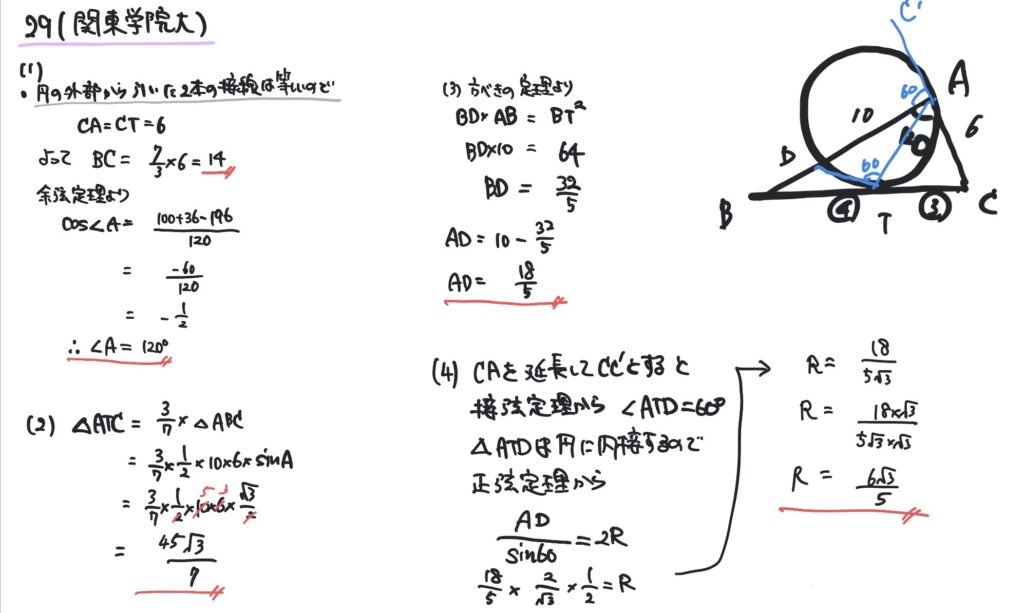 29(関東学院大)
(1)
・円の外部から引いた2本の接線は等しいので
CA=CT=6
よって BC = 7/3×6 = 14
余弦定理より
cos∠A = (100+36-196)/120
= -60/120
= -1/2
∴ ∠A = 120°
(2) △ATC = 3/7 × △ABC
= 3/7 × 1/2 × 10×6×sinA
= 3/7 × 1/2 × 10×6× √3/2
= 45√3/7
(3) 方べきの定理より
BD×AB = BT²
BD×10 = 64
BD = 32/5
AD = 10 - 32/5
AD = 18/5
(4) CAを延長してCC'とすると
接弦定理から ∠ATD=60°
△ATDは円に内接するので
正弦定理から
AD/sin60 = 2R
18/5 × 2/√3 × 1/2 = R
R = 18/5√3
R = 18×√3/5√3×√3
R = 6√3/5
C'
A
60
10
6
D
60
B
④
T
③
C